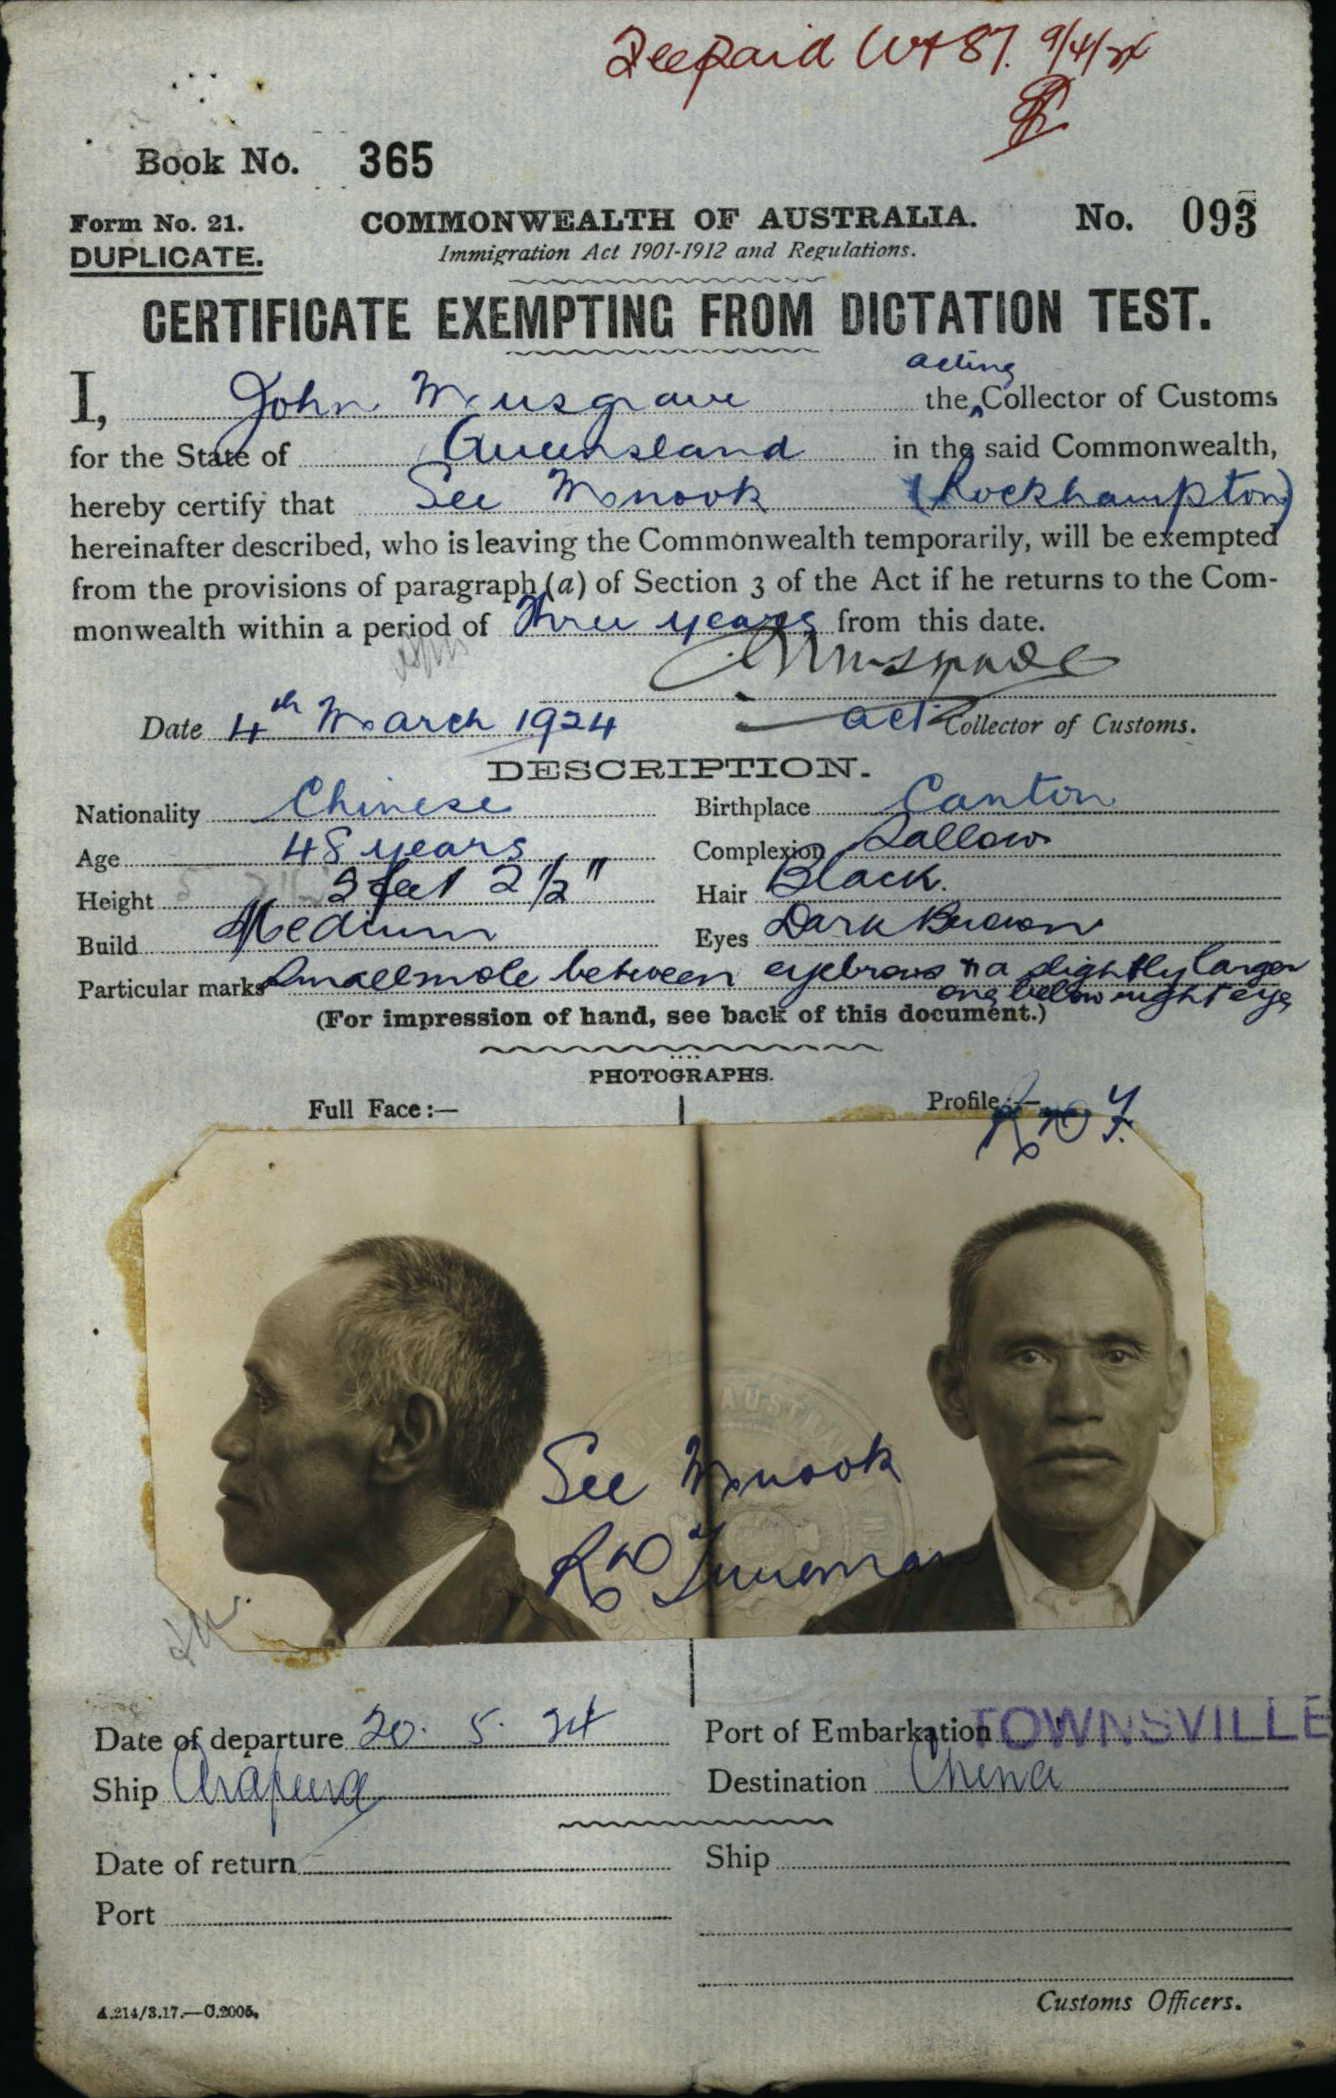 Fee paid W+87. 9/4/24
Book No. 365
Form No. 21. COMMONWEALTH OF AUSTRALIA. No. 093
DUPLICATE. Immigration Act 1901-1912 and Regulations.
CERTIFICATE EXEMPTING FROM DICTATION TEST.
acting
I, John Musgrave the Collector of Customs
for the State of Queensland in the said Commonwealth,
hereby certify that See Monook (Rockhampton)
hereinafter described, who is leaving the Commonwealth temporarily, will be exempted
from the provisions of paragraph (a) of Section 3 of the Act if he returns to the Com-
monwealth within a period of Three years from this date.
Date 4th March 1924 act Collector of Customs.
DESCRIPTION.
Nationality Chinese Birthplace Canton
Age 48 years Complexion Sallow
Height 5 feet 2 1/2" Hair Black.
Build Medium Eyes Dark Brown
Particular marks Small mole between eyebrows & a slightly larger
one below right eye
(For impression of hand, see back of this document.)
PHOTOGRAPHS.
Full Face:— Profile:—
See Monook
Date of departure 20. 5. 24 Port of Embarkation TOWNSVILLE
Ship Arafura Destination China
Date of return Ship
Port
Customs Officers.
A.214/3.17.—C.2005.